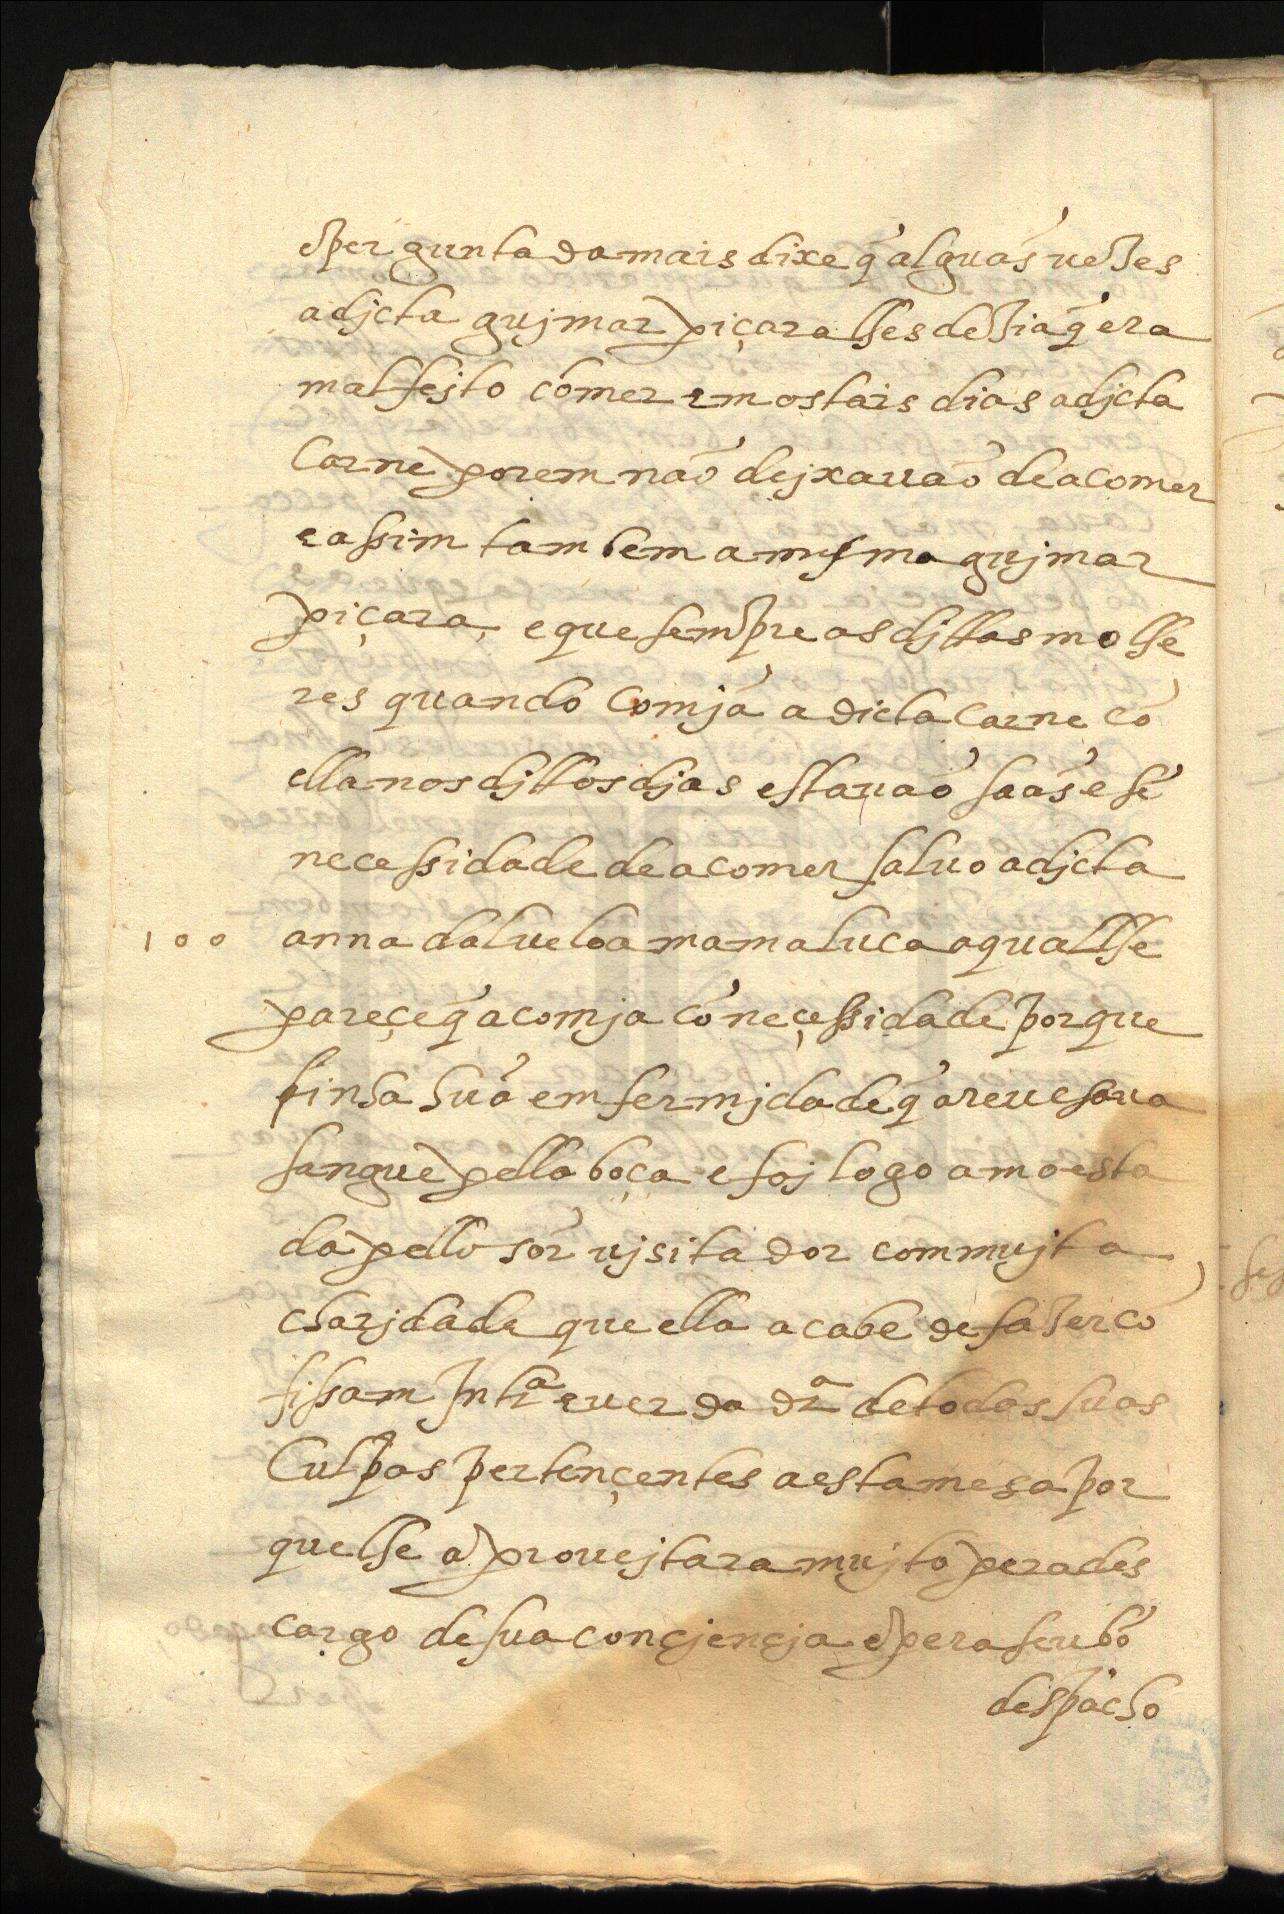 e pergunta da mais dixe q̃ alguãs vezes
a djcta gujmar piçara lhes dezia q̃ era
mal fejto comer em os tais dias a djcta
carne porem não dejxavaõ de a comer
e assim tambem a mesma gujmar
piçara, e que sempre as djttas molhe
res quando comjã a dicta carne cõ
ella nos djttos djas estavaõ saãs e sẽ
necessidade de a comer salvo a djcta
100 anna dalveloa mamaluca a qual lhe
pareçe q̃ a comja cõ neçessidade porque
tinha huã enfermjdade q̃ arevesava
sangue pella boça e foj logo amoesta
da pello sor vjsitador com mujta
charjdade que ella acabe de fazer cõ
fissam Intrª e verdadrª de todas suas
culpas pertençentes a esta mesa por
que lhe aprovejtara mujto pera des
cargo de sua conçjençja e pera seu bõ
despacho